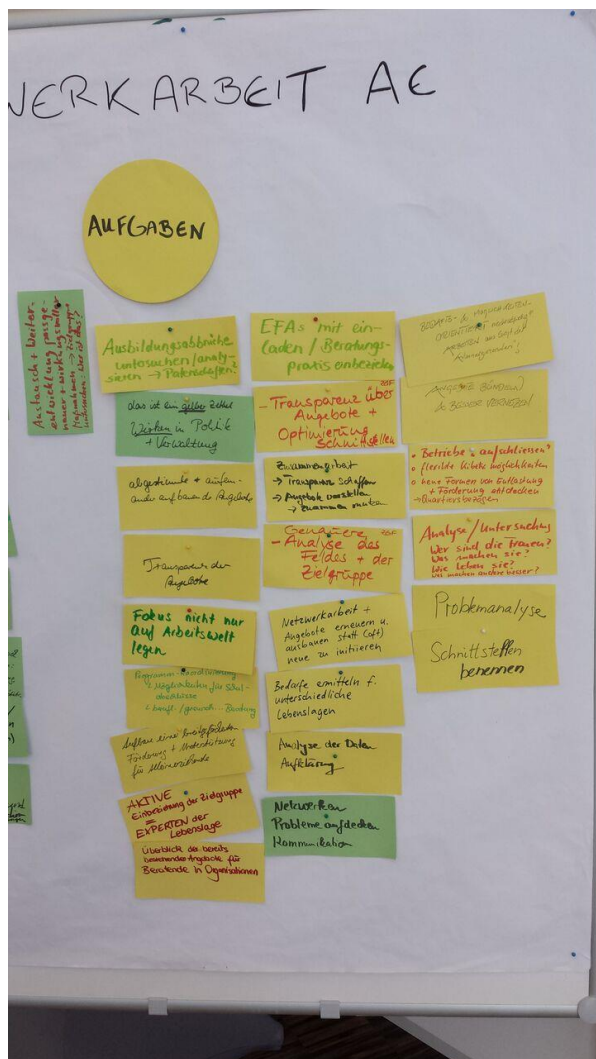 WERKARBEIT AE
AUFGABEN
Austausch + Weiter-
entwicklung passge-
nauer + wirkungsvoller
Maßnahmen → Zielgruppe
untersuchen: Wer ist das?
Ausbildungsabbrüche
untersuchen/analy-
sieren → Patenschaften?
das ist ein gelber Zettel
Wirken in Politik
+ Verwaltung
abgestimmte + aufein-
ander aufbauende Angebote
Transparenz der
Angebote
Fokus nicht nur
auf Arbeitswelt
legen
Möglichkeiten für Schul-
abschlüsse
Beratung
Aufbau einer
Förderung + Unterstützung
für Alleinerziehende
AKTIVE
Einbeziehung der Zielgruppe
=
EXPERTEN der
Lebenslage
Überblick der bereits
bestehenden Angebote für
Beratende in Organisationen
EFAs mit ein-
laden / Beratungs-
praxis einbeziehen
- Transparenz über
Angebote +
Optimierung
Schnittstellen
Zusammenarbeit
→ Transparenz schaffen
→ Angebote vorstellen
→ zusammen nutzen
Genauere
- Analyse des
Feldes + der
Zielgruppe
Netzwerkarbeit +
Angebote erneuern u.
ausbauen statt (oft)
neue zu initiieren
Bedarfe ermitteln f.
unterschiedliche
Lebenslagen
Analyse der Daten
Aufklärung
Netzwerken
Probleme aufdecken
Kommunikation
ANGEBOTE BÜNDELN
& BESSER VERNETZEN
• Betriebe "aufschliessen"
• flexible Kibetz möglichkeiten
• neue Formen von Entlastung
+ Förderung entdecken
→ quartiersbezogen
Analyse/Untersuchung
Wer sind die Frauen?
Was machen sie?
Wie leben sie?
Was machen andere besser?
Problemanalyse
Schnittstellen
benennen